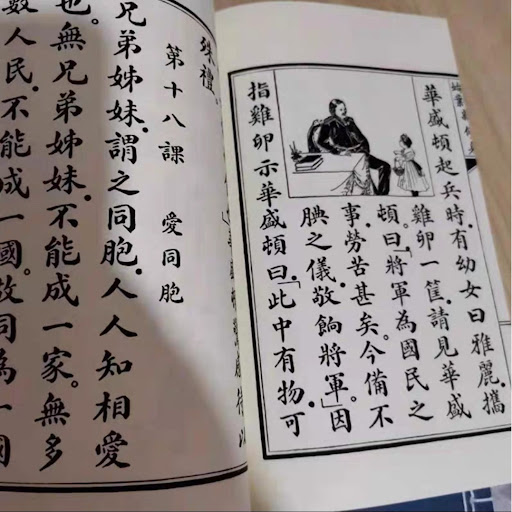 華盛頓起兵時.有幼女曰雅麗.攜
雞卵一筐.請見華盛
頓.曰「將軍為國民之
事.勞苦甚矣。今備不
腆之儀.敬餉將軍.」因
指雞卵示華盛頓曰.「此中有物.可
殊禮。
第十八課 愛同胞
兄弟姊妹.謂之同胞.人人知相愛
也。無兄弟姊妹.不能成一家。無多
數人民.不能成一國。故同為一國